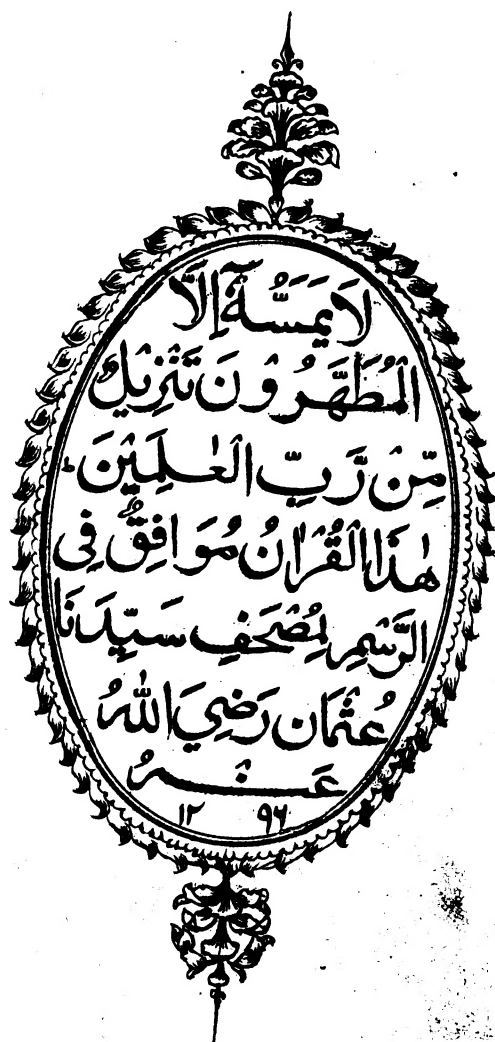 لَا يَمَسُّهٗٓ اِلَّا
الْمُطَهَّرُوْنَ تَنْزِيْلٌ
مِّنْ رَّبِّ الْعٰلَمِيْنَ
هٰذَا الْقُرْاٰنُ مُوَافِقٌ فِى
الرَّسْمِ لِمُصْحَفِ سَيِّدِنَا
عُثْمَان رَضِيَ اللّٰهُ
عَنْهُ
١٢ ٩٦